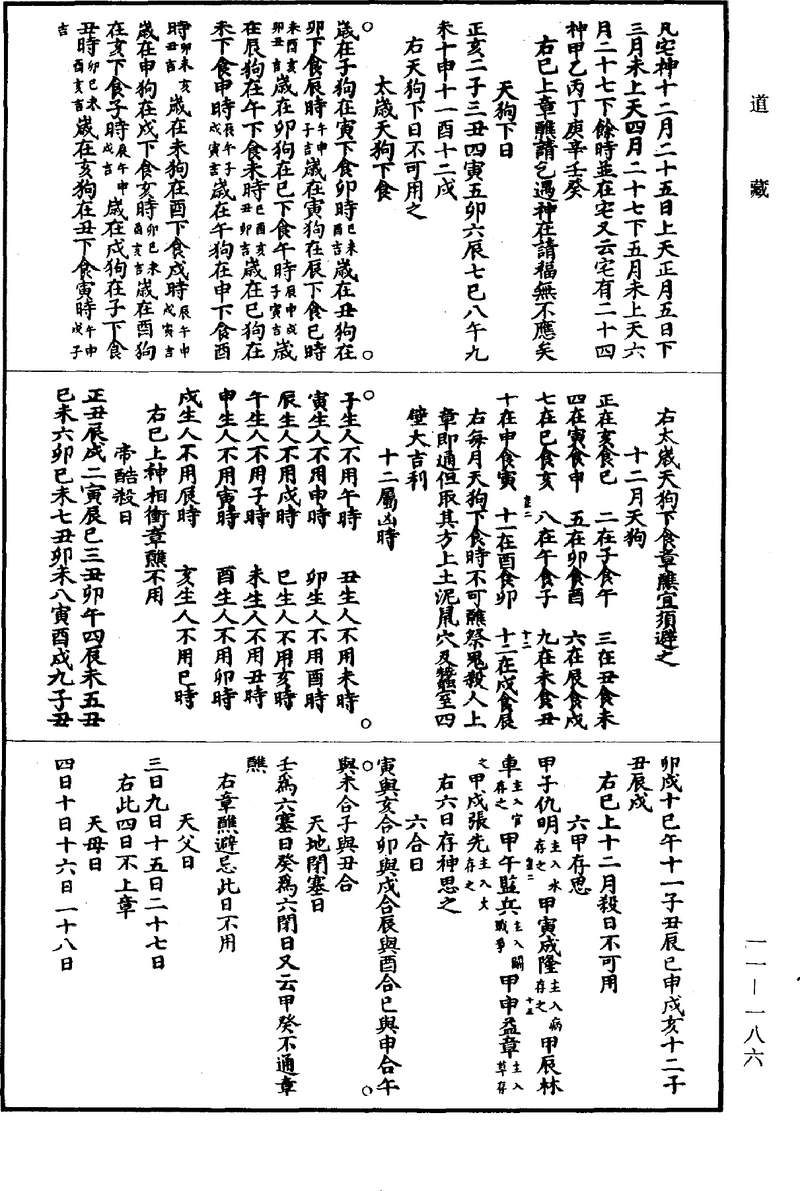 道藏
凡宅神十二月二十五日上天正月五日下
三月未上天四月二十七下五月未上天六
月二十七下餘時並在宅又云宅有二十四
神甲乙丙丁庚辛壬癸
右已上章醮請乞遇神在請福無不應矣
天狗下日
正亥二子三丑四寅五卯六辰七巳八午九
未十申十一酉十二戌
右天狗下日不可用之
太歲天狗下食
歲在子狗在寅下食卯時巳未酉吉歲在丑狗在
卯下食辰時午申子吉歲在寅狗在辰下食巳時
未酉亥卯丑吉歲在卯狗在巳下食午時辰申戌子寅吉歲
在辰狗在午下食未時巳酉亥丑卯吉歲在巳狗在
未下食申時辰午子戌寅吉歲在午狗在申下食酉
時卯未亥丑吉歲在未狗在酉下食戌時辰午申戌寅吉
歲在申狗在戌下食亥時卯巳未酉亥吉歲在酉狗
在亥下食子時辰午申戌吉歲在戌狗在子下食
丑時卯巳未酉亥吉歲在亥狗在丑下食寅時午申戌子
吉
右太歲天狗下食章醮宜須避之
十二月天狗
正在亥食巳 二在子食午 三在丑食未
四在寅食申 五在卯食酉 六在辰食戌
七在巳食亥 八在午食子 九在未食丑
十在申食寅 十一在酉食卯 十二在戌食辰
右每月天狗下食時不可醮祭鬼殺人上
章即通但取其方上土泥鼠穴及蠶室四
壁大吉利
十二屬凶時
子生人不用午時 丑生人不用未時
寅生人不用申時 卯生人不用酉時
辰生人不用戌時 巳生人不用亥時
午生人不用子時 未生人不用丑時
申生人不用寅時 酉生人不用卯時
戌生人不用辰時 亥生人不用巳時
右已上神相衝章醮不用
帝酷殺日
正丑辰戌二寅辰巳三丑卯午四辰未五丑
巳未六卯巳未七丑卯未八寅酉戌九子丑
卯戌十巳午十一子丑辰巳申戌亥十二子
丑辰戌
右已上十二月殺日不可用
六甲存思
甲子仇明主入水存之 甲寅成隆主入病存之 甲辰林
車主入官存之 甲午監兵主入鬭戰爭 甲申益章主入草存
之 甲戌張先主入火存之
右六日存神思之
六合日
寅與亥合卯與戌合辰與酉合巳與申合午
與未合子與丑合
天地閉塞日
壬為六塞日癸為六閉日又云甲癸不通章
醮
右章醮避忌此日不用
天父日
三日九日十五日二十七日
右此四日不上章
天母日
四日十日十六日一十八日
一一—一八六